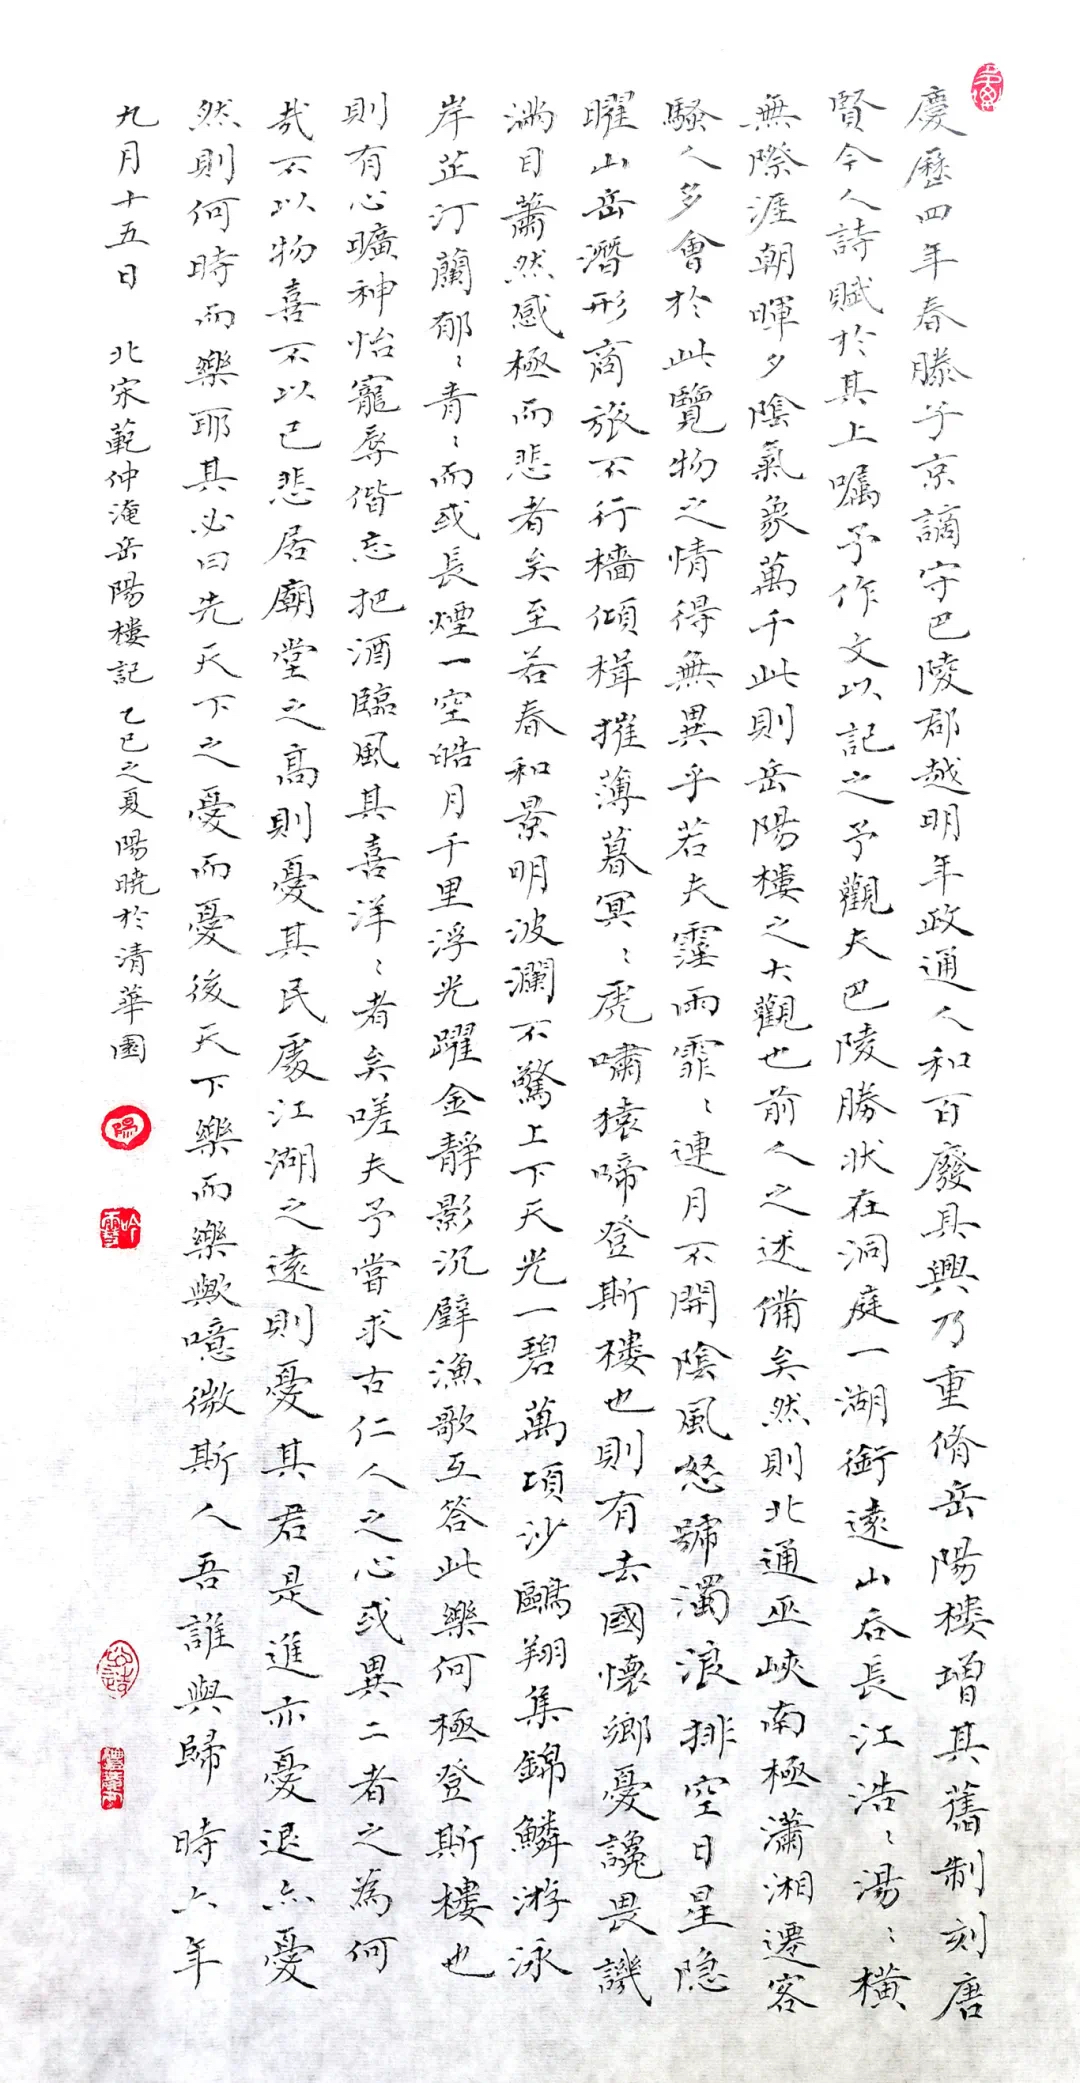 慶歷四年春滕子京謫守巴陵郡越明年政通人和百廢具興乃重脩岳陽樓增其舊制刻唐
賢今人詩賦於其上囑予作文以記之予觀夫巴陵勝狀在洞庭一湖銜遠山吞長江浩〻湯〻橫
無際涯朝暉夕陰氣象萬千此則岳陽樓之大觀也前人之述備矣然則北通巫峽南極瀟湘遷客
騷人多會於此覽物之情得無異乎若夫霪雨霏〻連月不開陰風怒號濁浪排空日星隐
曜山岳潛形商旅不行檣傾楫摧薄暮冥〻虎嘯猿啼登斯樓也則有去國懷鄉憂讒畏譏
滿目蕭然感極而悲者矣至若春和景明波瀾不驚上下天光一碧萬頃沙鷗翔集錦鱗游泳
岸芷汀蘭郁〻青〻而或長煙一空皓月千里浮光躍金靜影沉璧漁歌互答此樂何極登斯樓也
則有心曠神怡寵辱偕忘把酒臨風其喜洋〻者矣嗟夫予嘗求古仁人之心或異二者之為何
哉不以物喜不以己悲居廟堂之高則憂其民處江湖之遠則憂其君是進亦憂退亦憂
然則何時而樂耶其必曰先天下之憂而憂後天下樂而樂歟噫微斯人吾誰與歸 時六年
九月十五日 北宋範仲淹岳陽樓記 乙巳之夏陽曉於清華園
陽
吟雪